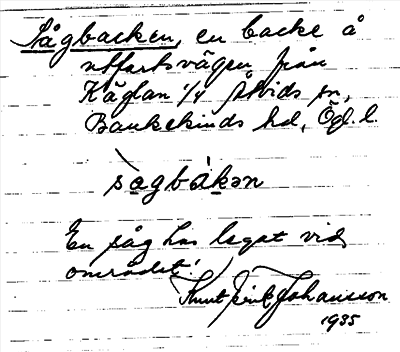 Sågbacken, en backe å
utfartsvägen från
Käglan 1/4 Åtvids sn,
Bankekinds hd, Ögl. l.
sagbakən
En såg har legat vid
området.
Knut Erik Johansson
1935